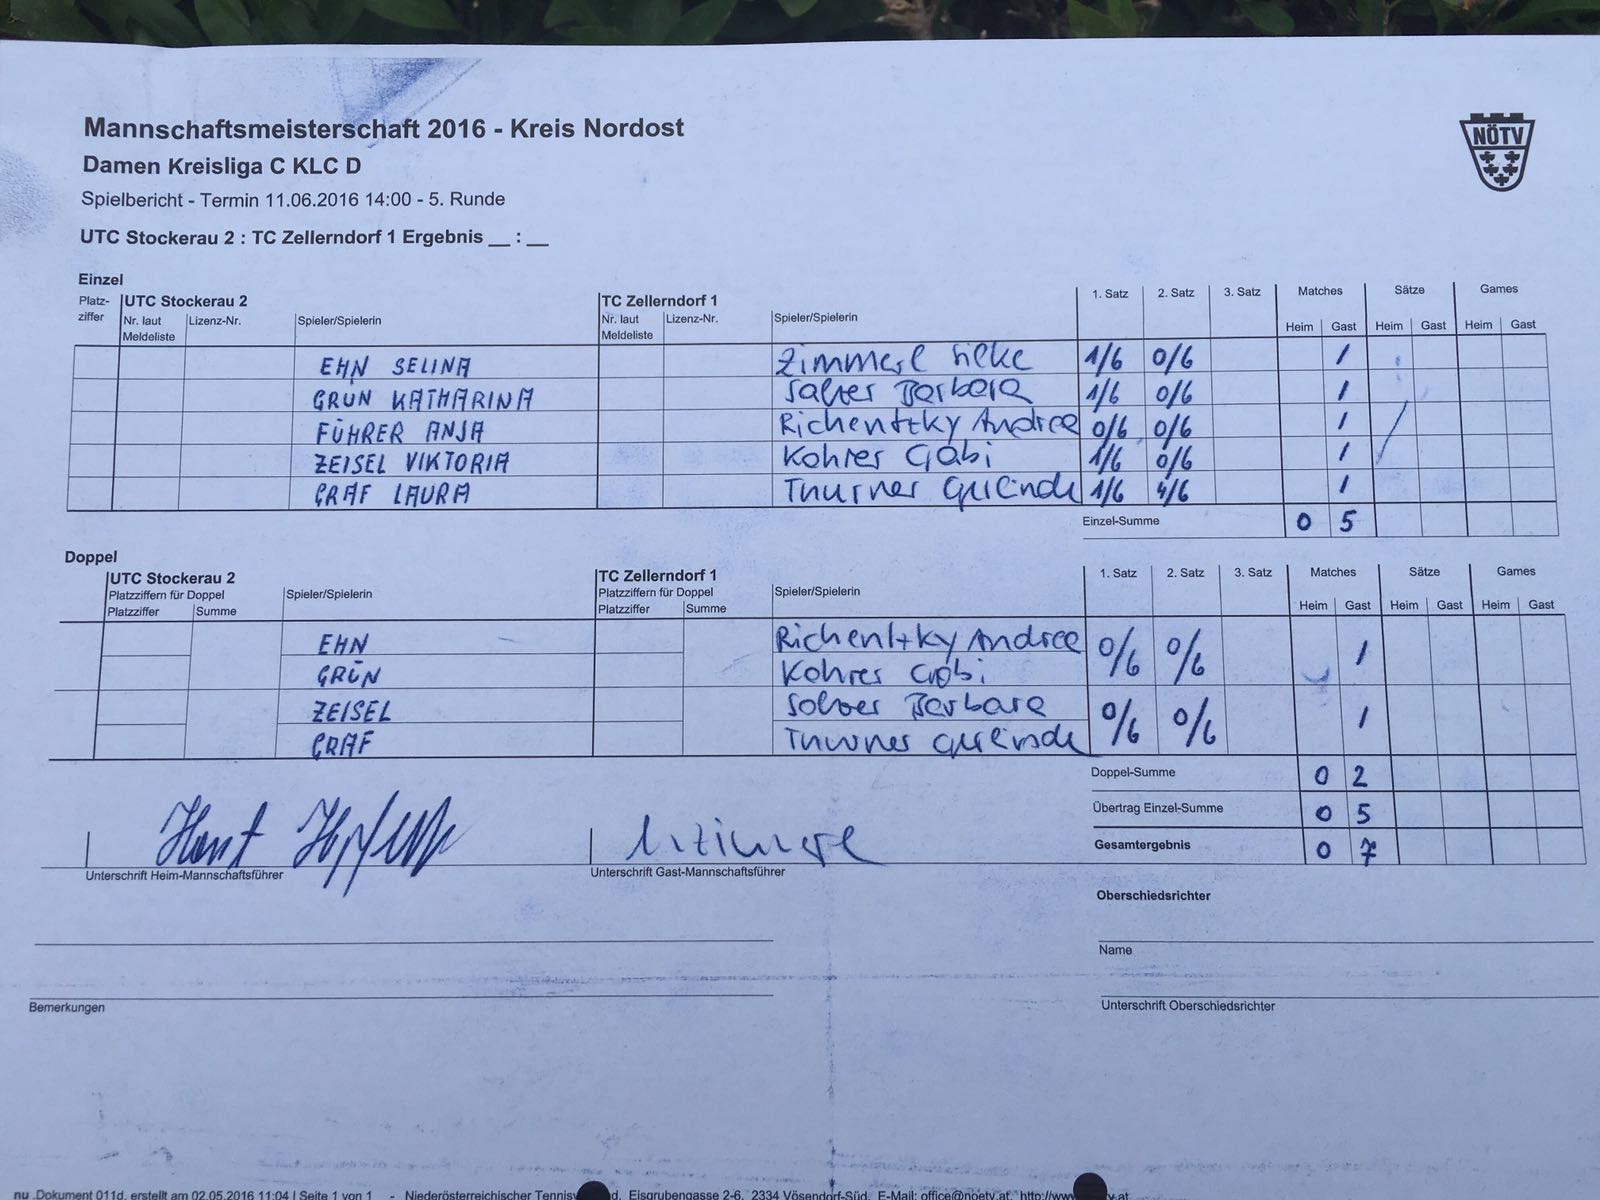 Mannschaftsmeisterschaft 2016 - Kreis Nordost
NÖTV
Damen Kreisliga C KLC D
Spielbericht - Termin 11.06.2016 14:00 - 5. Runde
UTC Stockerau 2 : TC Zellerndorf 1 Ergebnis __ : __
Einzel
Platz-ziffer UTC Stockerau 2 TC Zellerndorf 1 1. Satz 2. Satz 3. Satz Matches Sätze Games
Nr. laut Meldeliste Lizenz-Nr. Spieler/Spielerin Nr. laut Meldeliste Lizenz-Nr. Spieler/Spielerin Heim Gast Heim Gast Heim Gast
EHN SELINA Zimmerl Silke 1/6 0/6 1
GRÜN KATHARINA Salver Barbara 1/6 0/6 1
FÜHRER ANJA Richentzky Andrea 0/6 0/6 1
ZEISEL VIKTORIA Kohrer Gabi 1/6 0/6 1
GRAF LAURA Thurner 1/6 4/6 1
Einzel-Summe 0 5
Doppel
UTC Stockerau 2 TC Zellerndorf 1 1. Satz 2. Satz 3. Satz Matches Sätze Games
Platzziffern für Doppel Spieler/Spielerin Platzziffern für Doppel Spieler/Spielerin
Platzziffer Summe Platzziffer Summe Heim Gast Heim Gast Heim Gast
EHN Richentzky Andrea 0/6 0/6 1
GRÜN Kohrer Gabi
ZEISEL Salver Barbara 0/6 0/6 1
GRAF Thurner
Doppel-Summe 0 2
Übertrag Einzel-Summe 0 5
Gesamtergebnis 0 7
Unterschrift Heim-Mannschaftsführer Unterschrift Gast-Mannschaftsführer
Oberschiedsrichter
Name
Bemerkungen Unterschrift Oberschiedsrichter
nu .Dokument 011d, erstellt am 02.05.2016 11:04 | Seite 1 von 1 - Niederösterreichischer Eisgrubengasse 2-6, 2334 Vösendorf-Süd, E-Mail: office@noetv.at,